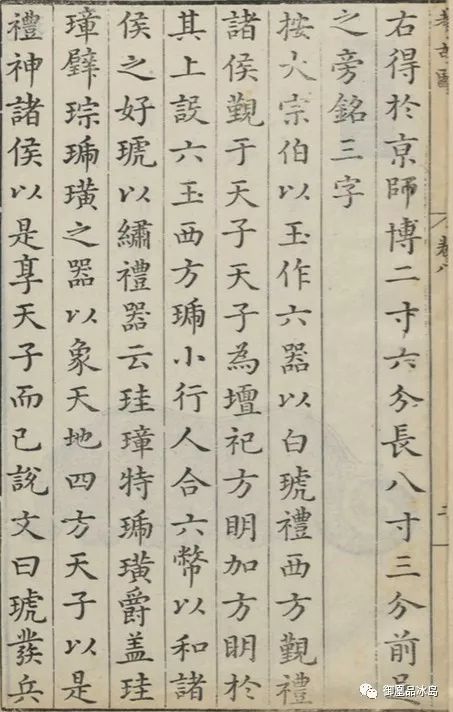 考古圖 卷八 二
右得於京師博二寸六分長八寸三分前足
之旁銘三字
按大宗伯以玉作六器以白琥禮西方覲禮
諸侯覲于天子天子為壇祀方明加方明於
其上設六玉西方琥小行人合六幣以和諸
侯之好琥以繡禮器云珪璋特琥璜爵盖珪
璋璧琮琥璜之器以象天地四方天子以是
禮神諸侯以是享天子而已說文曰琥發兵
御凰品冰岛